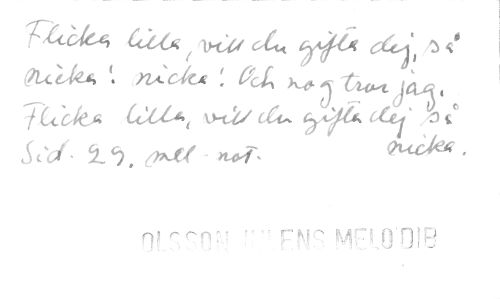 Flicka lilla, vill du gifta dej, så
nicka! nicka! Och nog tror jag.
Flicka lilla, vill du gifta dej så
nicka.
Sid. 29. mel. not.
OLSSON ENS MELODIB